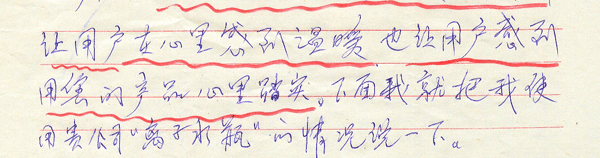 让用户在心里感到温暖也让用户感到
用您的产品心里踏实。下面我就把我使
用贵公司“离子水瓶”的情况说一下。